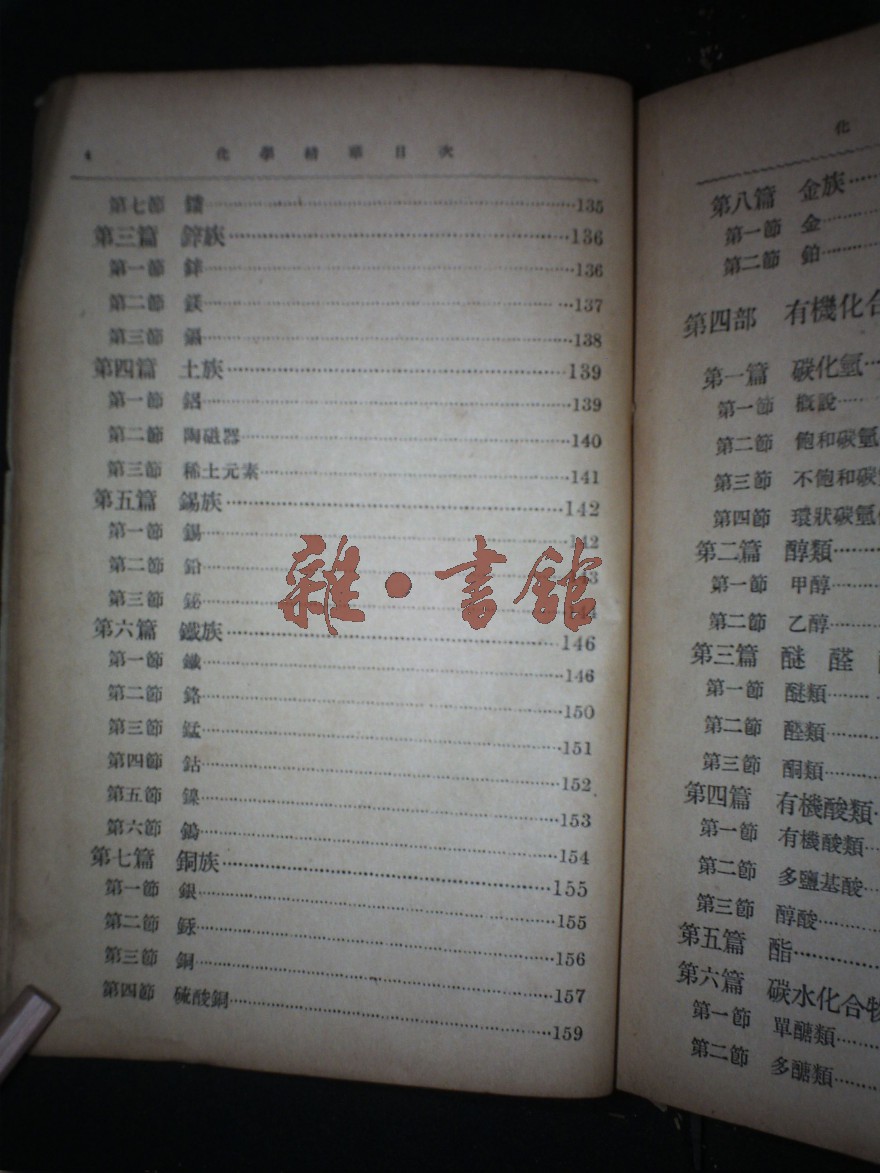 4 化學精華目次
第七節 鐳 135
第三篇 鋅族 136
第一節 鋅 136
第二節 鎂 137
第三節 鎘 138
第四篇 土族 139
第一節 鋁 139
第二節 陶磁器 140
第三節 稀土元素 141
第五篇 錫族 142
第一節 錫 142
第二節 鉛 143
第三節 鉍
第六篇 鐵族 146
第一節 鐵 146
第二節 鉻 150
第三節 錳 151
第四節 鈷 152
第五節 鎳 153
第六節 鎢 154
第七篇 銅族 155
第一節 銀 155
第二節 156
第三節 銅 157
第四節 硫酸銅 159
雜·書館
化
第八篇 金族
第一節 金
第二節 鉑
第四部 有機化合
第一篇 碳化氫
第一節 概說
第二節 飽和碳氫
第三節 不飽和碳
第四節 環狀碳氫
第二篇 醇類
第一節 甲醇
第二節 乙醇
第三篇 醚 醛
第一節 醚類
第二節 醛類
第三節 酮類
第四篇 有機酸類
第一節 有機酸類
第二節 多鹽基酸
第三節 醇酸
第五篇 酯
第六篇 碳水化合物
第一節 單醣類
第二節 多醣類